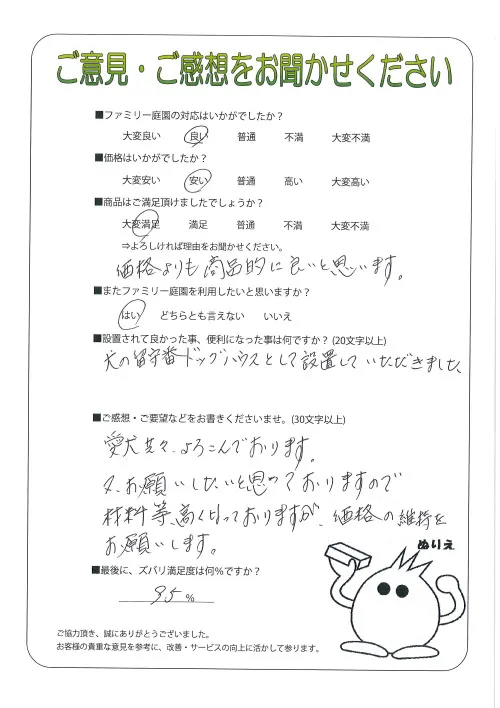 ご意見・ご感想をお聞かせください
■ファミリー庭園の対応はいかがでしたか？
大変良い 良い 普通 不満 大変不満
■価格はいかがでしたか？
大変安い 安い 普通 高い 大変高い
■商品はご満足頂けましたでしょうか？
大変満足 満足 普通 不満 大変不満
⇒よろしければ理由をお聞かせください。
価格よりも商品的に良いと思います。
■またファミリー庭園を利用したいと思いますか？
はい どちらとも言えない いいえ
■設置されて良かった事、便利になった事は何ですか？(20文字以上)
犬の留守番ドッグハウスとして設置していただきました
■ご感想・ご要望などをお書きくださいませ。(30文字以上)
愛犬共々、よろこんでおります。
又、お願いしたいと思っておりますので
材料等高くなっておりますが、価格への維持を
お願いします。
ぬりえ
■最後に、ズバリ満足度は何%ですか？
95 %
ご協力頂き、誠にありがとうございました。
お客様の貴重な意見を参考に、改善・サービスの向上に活かして参ります。